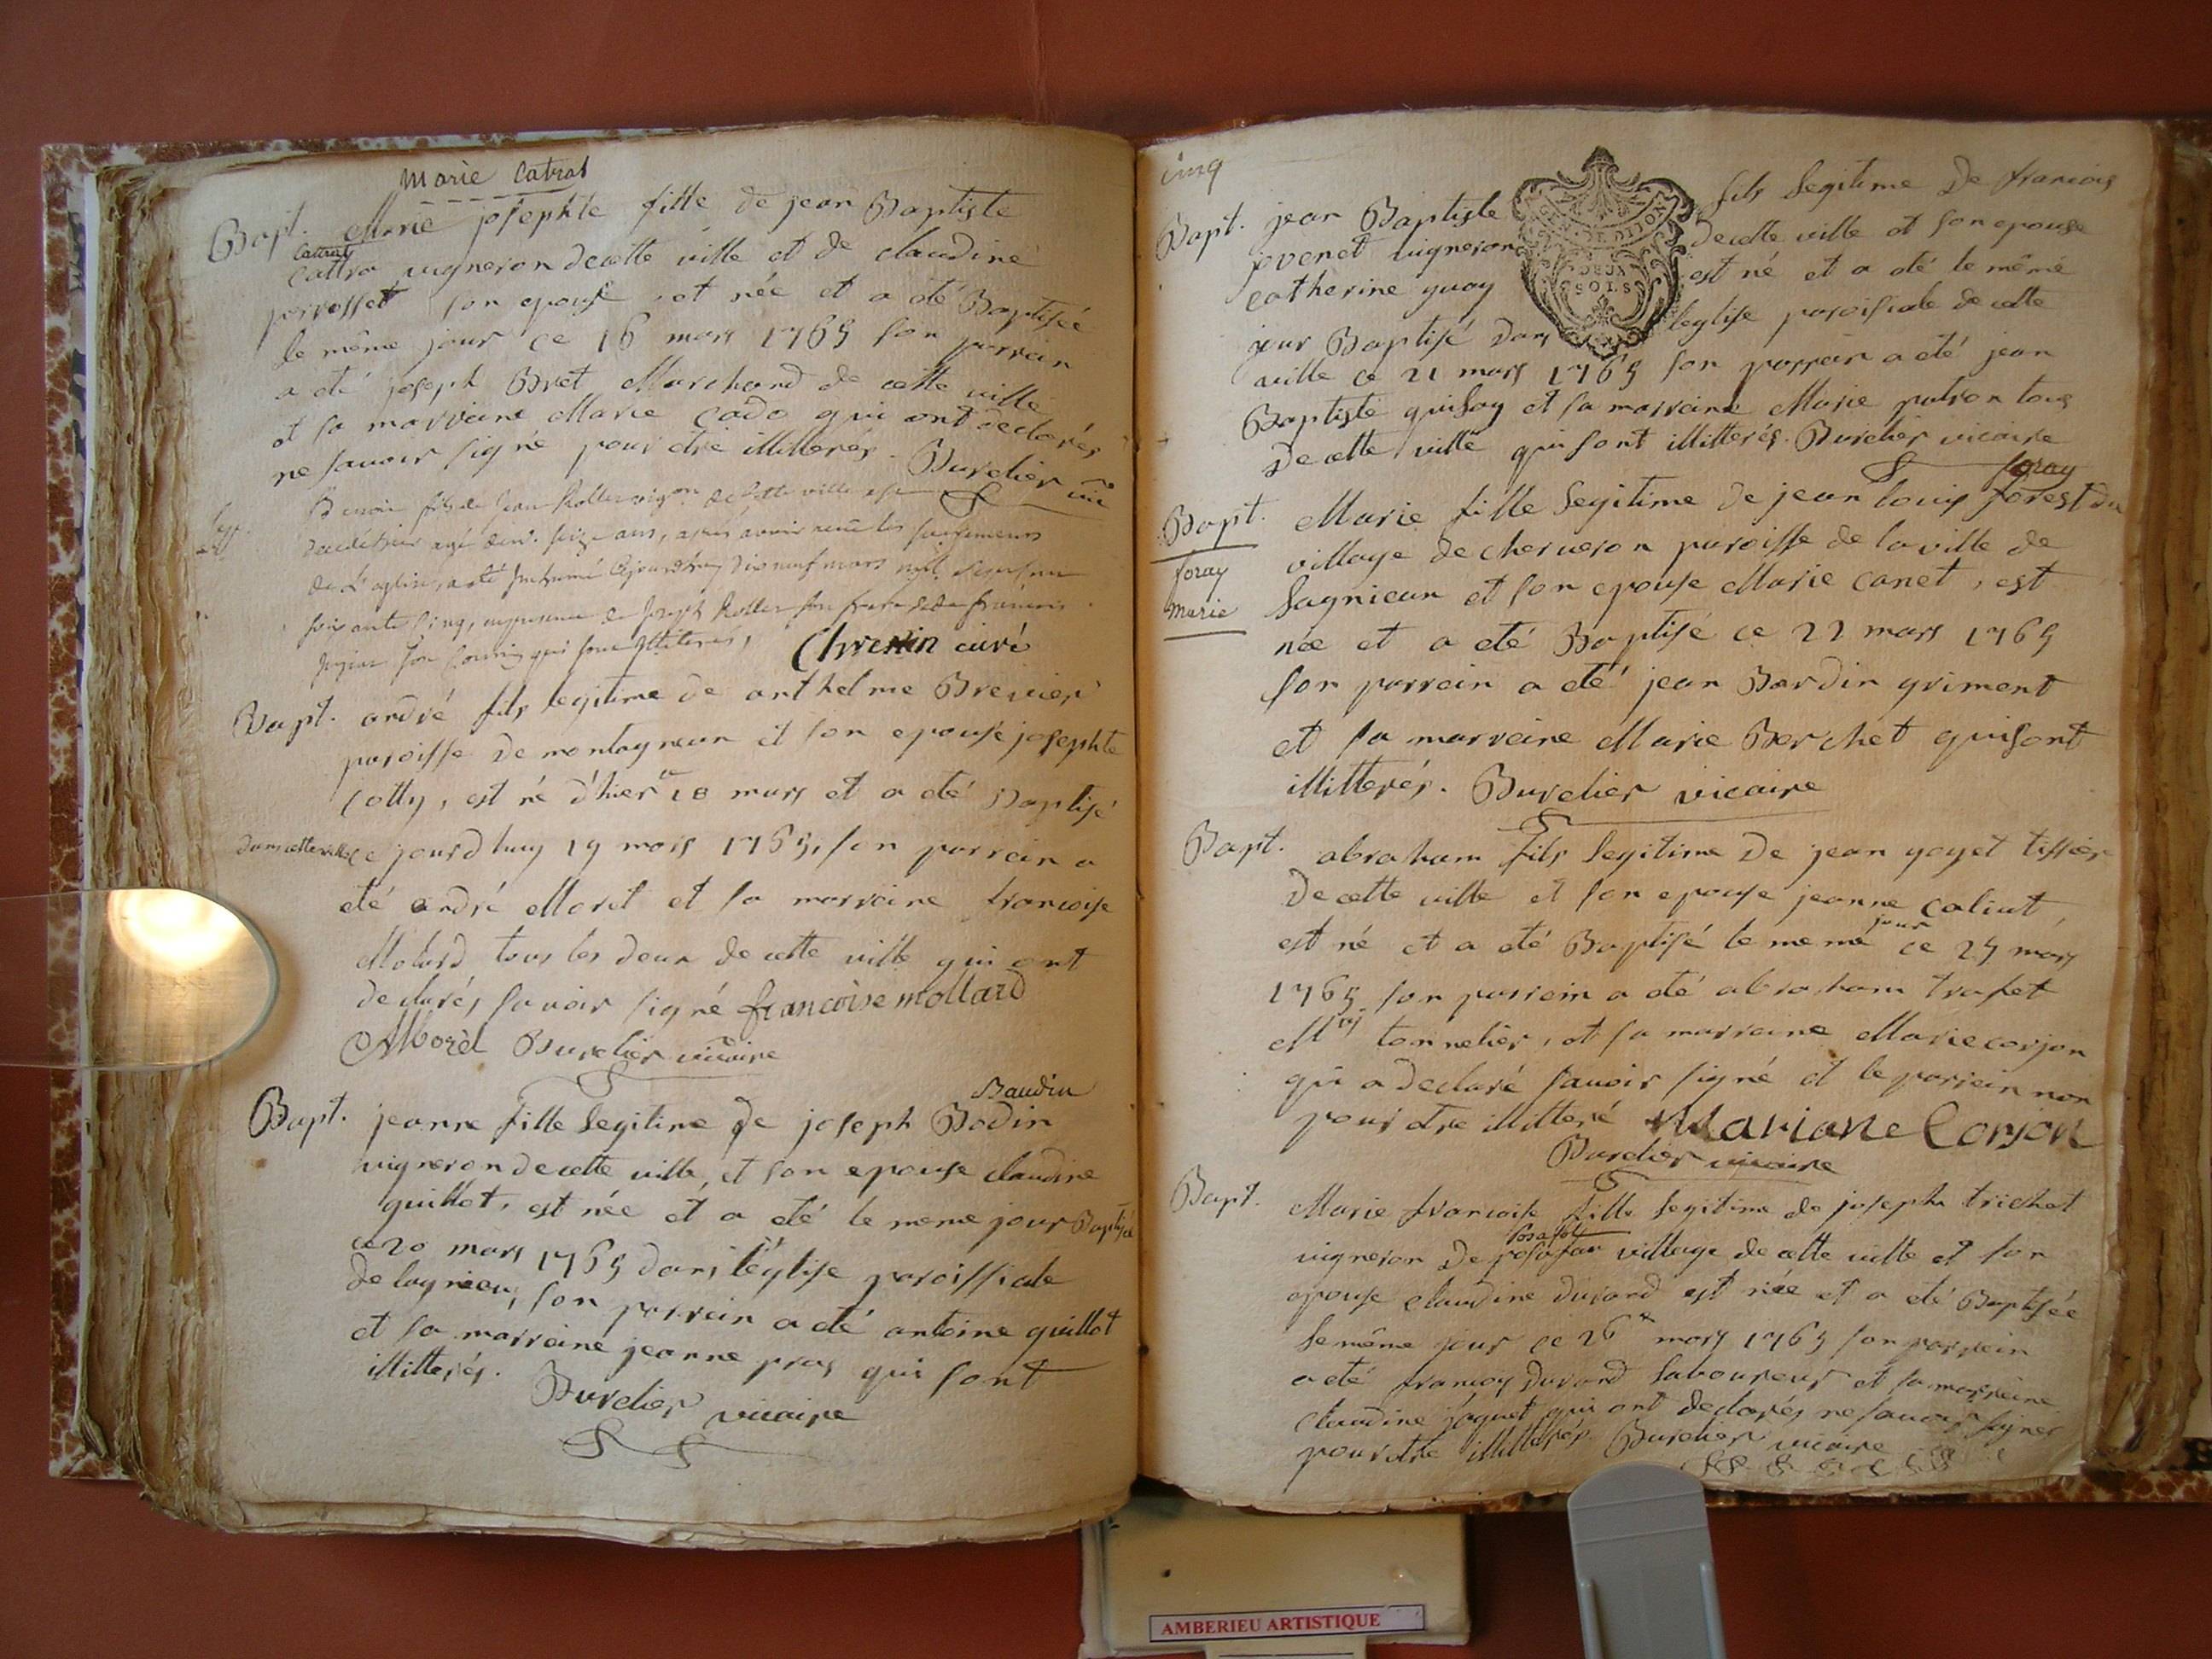 Marie Catrat
Bapt. Marie josephte fille de jean Baptiste
Cattrat
Cattra vigneron decette ville et de claudine
perrosset son epouse, est née et a été Baptisée
le même jour ce 16 mars 1765 son parrein
a été joseph Bret Marchand de cette ville
et sa marreine Marie Cado qui ont declarés
ne savoir signé pour etre illitterés. Burdier vic
fils de Jean Rollet vigon. de cette ville est
decédé hier agé denv. seize ans, après avoir receu les sacremens
de L'eglise, a eté Inhumé cejourdhuy dixneuf mars mil sept cent
soixante cinq, en presence de Joseph Rollet son frere & de francois
son Cousin qui sont Illiterés, curé
Bapt. andré fils legitime de anthelme Brevier
paroisse de montagneux et son epouse josephte
Cotty, est né d'hier ce 18 mars et a été Baptisé
dans cette ville ce jourdhuy 19 mars 1765, son parrein a
été andré Morel et sa marreine francoise
Molard tous les deux de cette ville qui ont
declarés savoir signé francoise mollard
AMorel Burdier vicaire
Baudin
Bapt. jeanne fille legitime de joseph Bodin
vigneron decette ville, et son epouse claudine
guillot, est née et a été le meme jour Baptisée
ce 20 mars 1765 dans l'église paroissiale
de lagnieu, son parrein a été antoine guillot
et sa marreine jeanne pras qui sont
illitterés. Burdier vicaire
cinq
Bapt. jean Baptiste fils legitime de francois
jvenet vigneron decette ville et son epouse
catherine guay est né et a été le même
jour Baptisé dans leglise paroissiale de cette
DE DIJON
DEUX
SOLS
ville ce 21 mars 1765 son parrein a été jean
Baptiste et sa marreine Marie patron tous
de cette ville qui sont illitterés. Burdier vicaire
foray
Bapt. Marie fille legitime de jean louis forest du
foray
marie
village de cherveron paroisse de la ville de
lagnieu et son epouse Marie canet, est
née et a été Baptisé ce 22 mars 1765
son parrein a été jean Bardin griment
et sa marreine Marie Berchet qui sont
illitterés. Burdier vicaire
Bapt. abraham fils legitime de jean goyet tissier
de cette ville et son epouse jeanne caliut,
est né et a été Baptisé le meme jour ce 25 mars
1765 son parrein a été abraham trafet
tonnelier, et sa marreine Marie corjon
qui a declaré savoir signé et le parrein non
pour etre illitteré Mariane Corjon
Burdier vicaire
Bapt. Marie francoise fille legitime de joseph trichet
posafol
vigneron de posafau village de cette ville et son
epouse claudine durand est née et a été Baptisée
le même jour ce 26 mars 1765 son parrein
a été francoy durand laboureur et sa marreine
claudine jaquet qui ont declarés ne savoir signer
pour etre illitterés Burdier vicaire
AMBERIEU ARTISTIQUE